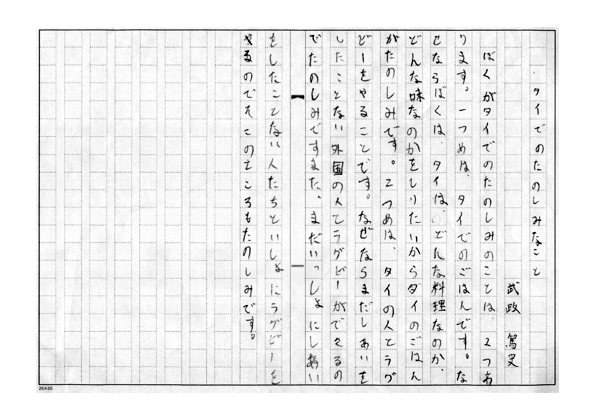 タイでのたのしみなこと
武政 篤史
ぼくがタイでのたのしみのことは、2つあ
ります。一つめは、タイでのごはんです。な
ぜならぼくは、タイは、どんな料理なのか、
どんな味なのかをしりたいからタイのごはん
がたのしみです。2つめは、タイの人とラグ
ビーをやることです。なぜならまだしあいを
したことない外国の人とラグビーができるの
でたのしみですまた、まだいっしょにしあい
をしたことない人たちといしょにラグビーを
やるのでそこのところもたのしみです。
20×20